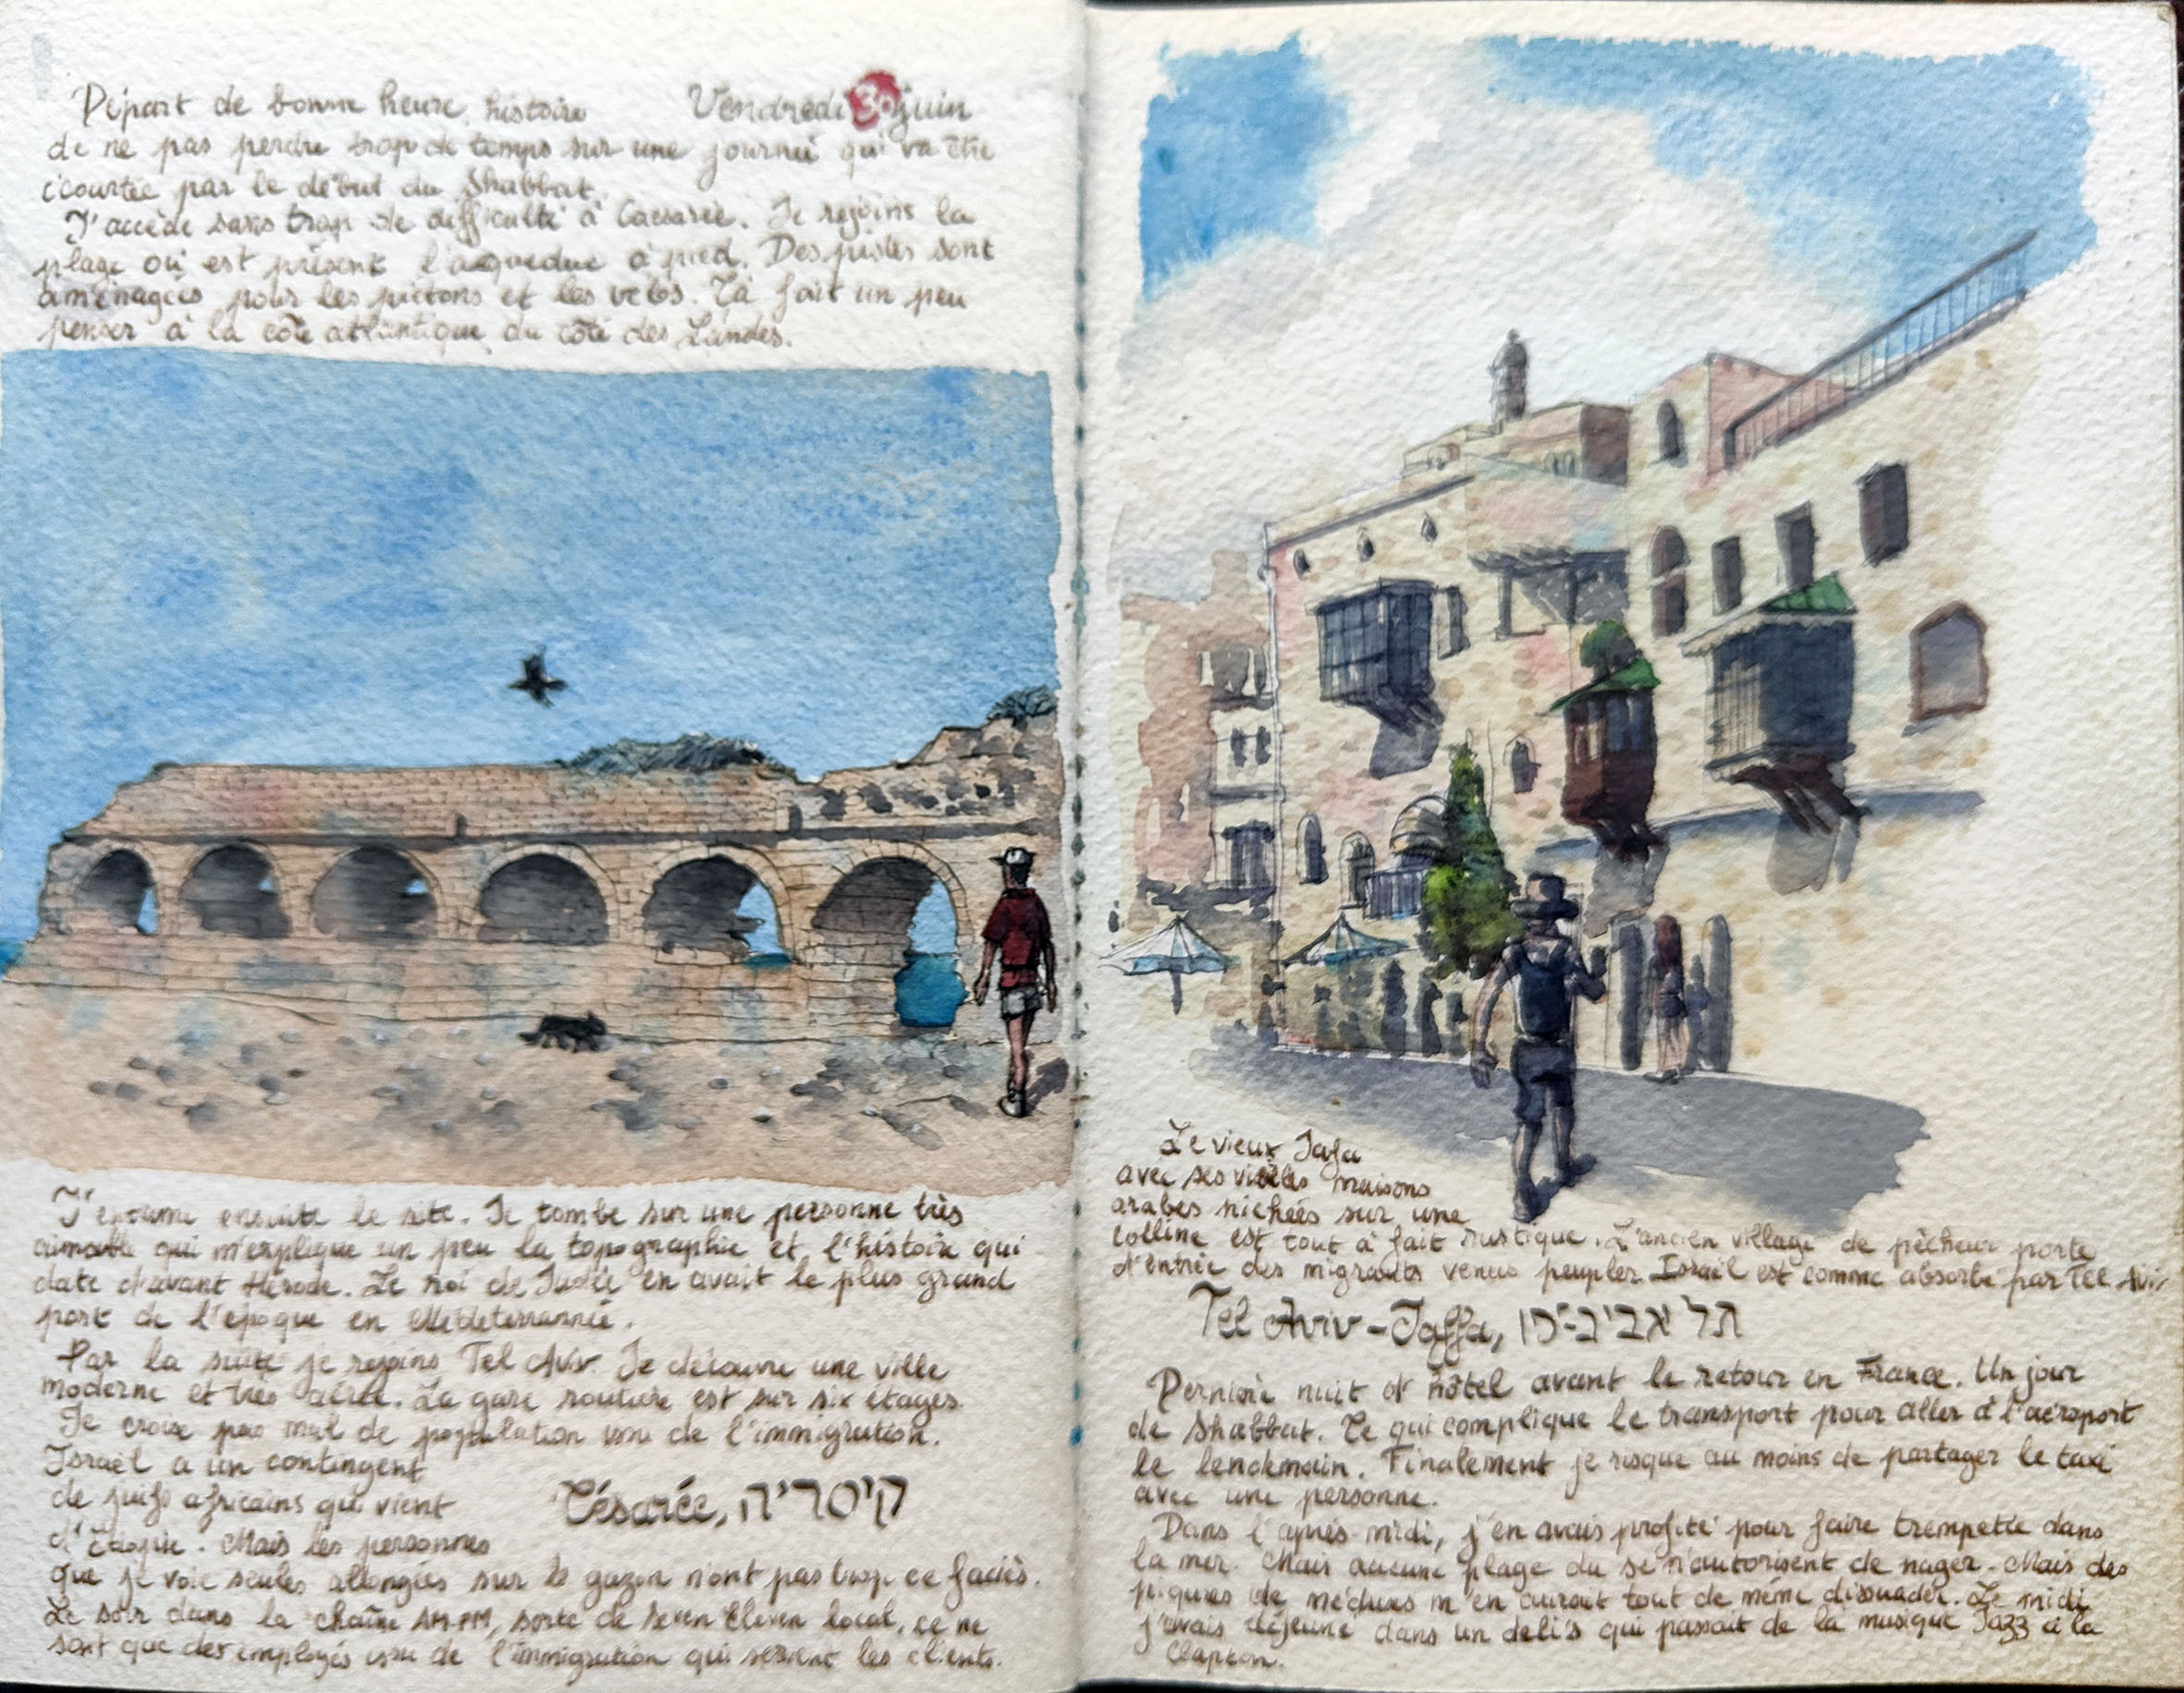 Départ de bonne heure, histoire
Vendredi 30 juin
de ne pas perdre trop de temps sur une journée qui va être
écourtée par le début du Shabbat.
J'accède sans trop de difficulté à Caesarée. Je rejoins la
plage où est présent l'aqueduc à pied. Des pistes sont
aménagées pour les piétons et les vélos. Ça fait un peu
penser à la côte atlantique du côté des Landes.
J' ensuite le site. Je tombe sur une personne très
aimable qui m'explique un peu la topographie et l'histoire qui
date d'avant Hérode. Le roi de Judée en avait le plus grand
port de l'époque en Méditerrannée.
Par la suite je rejoins Tel Aviv. Je découvre une ville
moderne et très aérée. La gare routière est sur six étages.
Je croise pas mal de population issu de l'immigration.
Israël a un contingent
de juifs africains qui vient
d'Ethiopie. Mais les personnes
que je vois seules allongées sur le gazon n'ont pas trop ce faciès.
Le soir dans la chaîne AM-PM, sorte de Seven Eleven local, ce ne
sont que des employés issu de l'immigration qui servent les clients.
Césarée, קיסריה
Le vieux Jafa
avec ses vieilles maisons
arabes nichées sur une
colline est tout à fait rustique. L'ancien village de pêcheur porte
d'entrée des migrants venus peupler Israël est comme absorbé par Tel Aviv
Tel Aviv-Jaffa, תל אביב-יפו
Dernière nuit d'hôtel avant le retour en France. Un jour
de Shabbat. Ce qui complique le transport pour aller à l'aéroport
le lendemain. Finalement je risque au moins de partager le taxi
avec une personne.
Dans l'après-midi, j'en avais profité pour faire trempette dans
la mer. Mais aucune plage du se n'autorisent de nager. Mais des
piqures de méduses m'en auront tout de même dissuader. Le midi
j'avais déjeuné dans un deli's qui passait de la musique Jazz à la
Clapton.